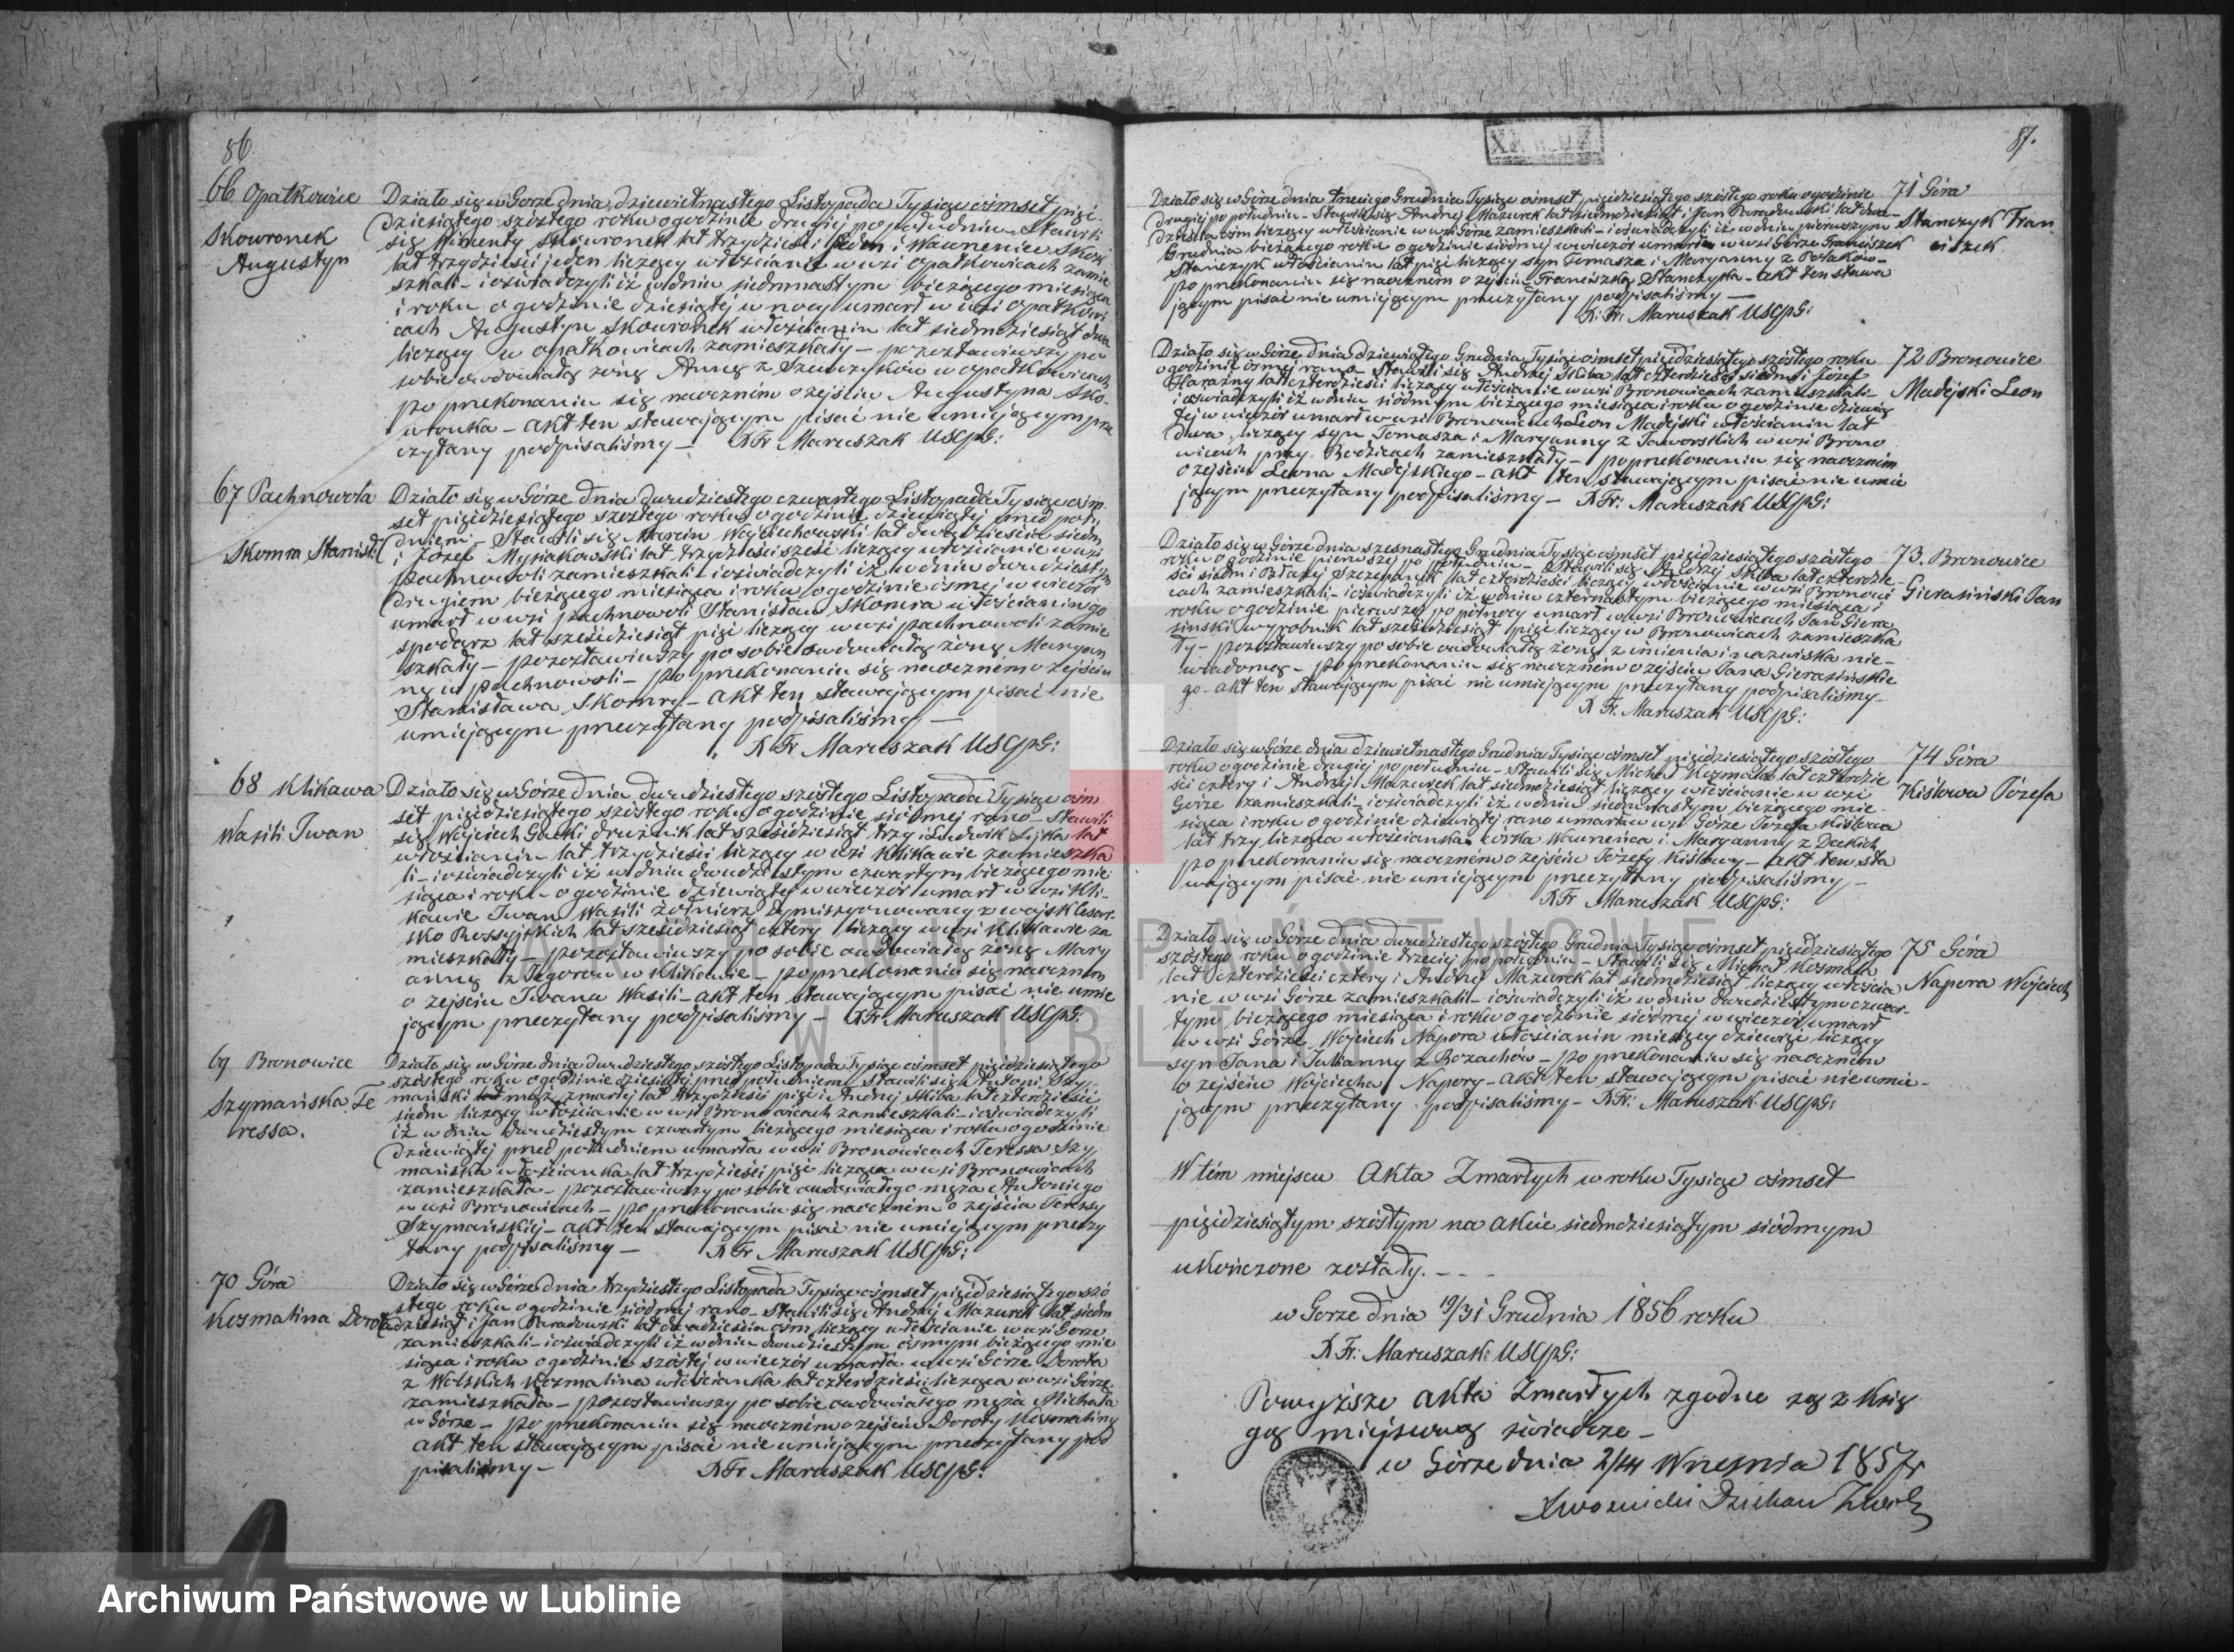 86.
66 Opatkowice
Skowronek
Augustyn
Działo się w Górze dnia dziewiętnastego Listopada Tysiąc ośmset pięć-
dziesiątego szóstego roku o godzinie drugiej po południu – Stawili
się Wincenty Skowronek lat trzydzieści jeden i Wawrzeniec
lat trzydzieści jeden liczący włościanie w wsi Opatkowicach zamie
szkali – i oświadczyli iż w dniu siedmnastym bieżącego miesiąca
i roku o godzinie dziesiątej w nocy umarł w wsi Opatkowi
cach Augustyn Skowronek włościanin lat siedmdziesiąt dwa
liczący w Opatkowicach zamieszkały – pozostawiwszy po
sobie owdowiałą żonę Annę z Szewczyków w Opatkowicach
po przekonaniu się naocznem o zejściu Augustyna Sko-
wronka – akt ten stawającym pisać nie umiejącym prze
czytany podpisaliśmy – X Fr Maruszak USCpG:
67 Pachnowola
Skomra Stanisł:
Działo się w Górze dnia dwudziestego czwartego Listopada Tysiąc ośm-
set pięćdziesiątego szóstego roku o godzinie dziewiątej przed połu
dniem – Stawili się Marcin Wojciechowski lat dwadzieścia siedm
i Józef Mysiakowski lat trzydzieści sześć liczący włościanie w wsi
Pachnowoli zamieszkali – i oświadczyli iż w dniu dwudziestym
drugiem bieżącego miesiąca i roku o godzinie ósmej w wieczór
umarł w wsi Pachnowoli Stanisław Skomra włościanin go
spodarz lat sześćdziesiąt pięć liczący w wsi Pachnowoli zamie
szkały – pozostawiwszy po sobie owdowiałą żonę Maryan
nę w Pachnowoli – po przekonaniu się naocznem o zejściu
Stanisława Skomry – akt ten stawającym pisać nie
umiejącym przeczytany podpisaliśmy –
X Fr Maruszak USCpG:
68 Klikawa
Wasili Iwan
Działo się w Górze dnia dwudziestego szóstego Listopada Tysiąc ośm
set pięćdziesiątego szóstego roku o godzinie siódmej rano – Stawili
się Wojciech Gacki drużnik lat sześćdziesiąt trzy i Ludwik Sijka lat
włościanin lat trzydzieści liczący w wsi Klikawie zamieszka
li – i oświadczyli iż w dniu dwudziestym czwartym bieżącego mie
siąca i roku o godzinie dziewiątej w wieczór umarł w wsi Kli-
kawie Iwan Wasili żołnierz dymissyonowany z wojsk Cesar-
sko Rossyjskich lat sześćdziesiąt cztery liczący w wsi Klikawie za
mieszkały – pozostawiwszy po sobie owdowiałą żonę Mary
annę z Jegorow w Klikawie – po przekonaniu się naocznem
o zejściu Iwana Wasili – akt ten stawającym pisać nie umie
jącym przeczytany podpisaliśmy – X Fr Maruszak USCpG:
69 Bronowice
Szymańska Te
ressa.
Działo się w Górze dnia dwudziestego szóstego Listopada Tysiąc ośmset pięćdziesiątego
szóstego roku o godzinie dziesiątej przed południem Stawili się Antoni Szy-
mański mąż zmarłej lat trzydzieści pięć i Andrzej Skiba lat czterdzieści
siedm liczący włościanie w wsi Bronowicach zamieszkali – i oświadczyli
iż w dniu dwudziestym czwartym bieżącego miesiąca i roku o godzinie
dziewiątej przed południem umarła w wsi Bronowicach Teressa Szy
mańska włościanka lat trzydzieści pięć licząca w wsi Bronowicach
zamieszkała – pozostawiwszy po sobie owdowiałego męża Antoniego
w wsi Bronowicach – po przekonaniu się naocznem o zejściu Teressy
Szymańskiej – akt ten stawającym pisać nie umiejącym przeczy
tany podpisaliśmy – X Fr Maruszak USCpG:
70 Góra
Kozmalina Dorota
Działo się w Górze dnia trzydziestego Listopada Tysiąc ośmset pięćdziesiątego szó
stego roku o godzinie siódmej rano – Stawili się Andrzej Mazurek lat siedm
dziesiąt i Jan Paradowski lat dwadzieścia ośm liczący włościanie w wsi Górze
zamieszkali – i oświadczyli iż w dniu dwudziestym ósmym bieżącego mie
siąca i roku o godzinie szóstej w wieczór umarła w wsi Górze Dorota
z Wolskich Kozmalina włościanka lat czterdzieści licząca w wsi Górze
zamieszkała – pozostawiwszy po sobie owdowiałego męża Michała
w Górze – po przekonaniu się naocznem o zejściu Doroty Kozmaliny
akt ten stawającym pisać nie umiejącym przeczytany pod
pisaliśmy – X Fr Maruszak USCpG:
87.
71 Góra
Stanczyk Fran
ciszek
Działo się w Górze dnia trzeciego Grudnia Tysiąc ośmset pięćdziesiątego szóstego roku o godzinie
drugiej po południu – Stawili się Andrzej Mazurek lat siedmdziesiąt i Jan Paradowski lat dwa-
dzieścia ośm liczący włościanie w wsi Górze zamieszkali – i oświadczyli iż w dniu pierwszym
Grudnia bieżącego roku o godzinie siódmej w wieczór umarł w wsi Górze Franciszek
Stanczyk włościanin lat pięć liczący syn Tomasza i Maryanny z Polaków –
po przekonaniu się naocznem o zejściu Franciszka Stanczyka – akt ten stawa
jącym pisać nie umiejącym przeczytany podpisaliśmy –
X. Fr: Maruszak USCpG:
72 Bronowice
Madejski Leon
Działo się w Górze dnia dziewiątego Grudnia Tysiąc ośmset pięćdziesiątego szóstego roku
o godzinie ósmej rano – Stawili się Andrzej Skiba lat czterdzieści siedm i Józef
Harazny lat czterdzieści liczący włościanie w wsi Bronowicach zamieszkali –
i oświadczyli iż w dniu siódmym bieżącego miesiąca i roku o godzinie dziewią
tej w wieczór umarł w wsi Bronowicach Leon Madejski włościanin lat
dwa liczący syn Tomasza i Maryanny z Jaworskich w wsi Brono
wicach przy Rodzicach zamieszkały – po przekonaniu się naocznem
o zejściu Leona Madejskiego – akt ten stawającym pisać nie umie
jącym przeczytany podpisaliśmy – X Fr: Maruszak USCpG:
73. Bronowice
Gierasiński Jan
Działo się w Górze dnia szesnastego Grudnia Tysiąc ośmset pięćdziesiątego szóstego
roku o godzinie pierwszej po południu – Stawili się Andrzej Skiba lat czterdzie-
ści siedm i Błażej Szczepanik lat czterdzieści liczący włościanie w wsi Bronowi
cach zamieszkali – i oświadczyli iż w dniu czternastym bieżącego miesiąca i
roku o godzinie pierwszej po północy umarł w wsi Bronowicach Jan Giera
siński wyrobnik lat sześćdziesiąt pięć liczący w Bronowicach zamieszka
ły – pozostawiwszy po sobie owdowiałą żonę z imienia i nazwiska nie-
wiadomą – po przekonaniu się naocznem o zejściu Jana Gierasińskie
go – akt ten stawającym pisać nie umiejącym przeczytany podpisaliśmy –
X Fr. Maruszak USCpG:
74 Góra
Kisłowa Józefa
Działo się w Górze dnia dziewiętnastego Grudnia Tysiąc ośmset pięćdziesiątego szóstego
roku o godzinie drugiej po południu – Stawili się Michał Kozmala lat czterdzie
ści cztery i Andrzej Mazurek lat siedmdziesiąt liczący włościanie w wsi
Górze zamieszkali – i oświadczyli iż w dniu siedmnastym bieżącego mie-
siąca i roku o godzinie dziewiątej rano umarła w wsi Górze Józefa Kisłowa
lat trzy licząca włościanka córka Wawrzeńca i Maryanny z Deckich
po przekonaniu się naocznem o zejściu Józefy Kisłowy – akt ten sta
wającym pisać nie umiejącym przeczytany podpisaliśmy –
X Fr Maruszak USCpG:
75 Góra
Napora Wojciech
Działo się w Górze dnia dwudziestego szóstego Grudnia Tysiąc ośmset pięćdziesiątego
szóstego roku o godzinie trzeciej po południu – Stawili się Michał Kozmala
lat czterdzieści cztery i Andrzej Mazurek lat siedmdziesiąt liczący włościa
nie w wsi Górze zamieszkali – i oświadczyli iż w dniu dwudziestym czwar-
tym bieżącego miesiąca i roku o godzinie siódmej w wieczór umarł
w wsi Górze Wojciech Napora włościanin miesięcy dziewięć liczący
syn Jana i Julianny z Rozachów – po przekonaniu się naocznem
o zejściu Wojciecha Napory – akt ten stawającym pisać nie umie-
jącym przeczytany podpisaliśmy – X Fr: Maruszak USCpG:
W tém miejscu Akta Zmarłych w roku Tysiąc ośmset
pięćdziesiątym szóstym na akcie siedmdziesiątym siódmym
ukończone zostały. –
w Górze dnia 19/31 Grudnia 1856 roku
X Fr: Maruszak USCpG:
Powyższe akta Zmarłych zgodne są z Księ
gą miejscową świadczę –
w Górze dnia 2/14 Września 1857 r
Dziekan
ARCHIWUM PAŃSTWOWE
W LUBLINIE
Archiwum Państwowe w Lublinie